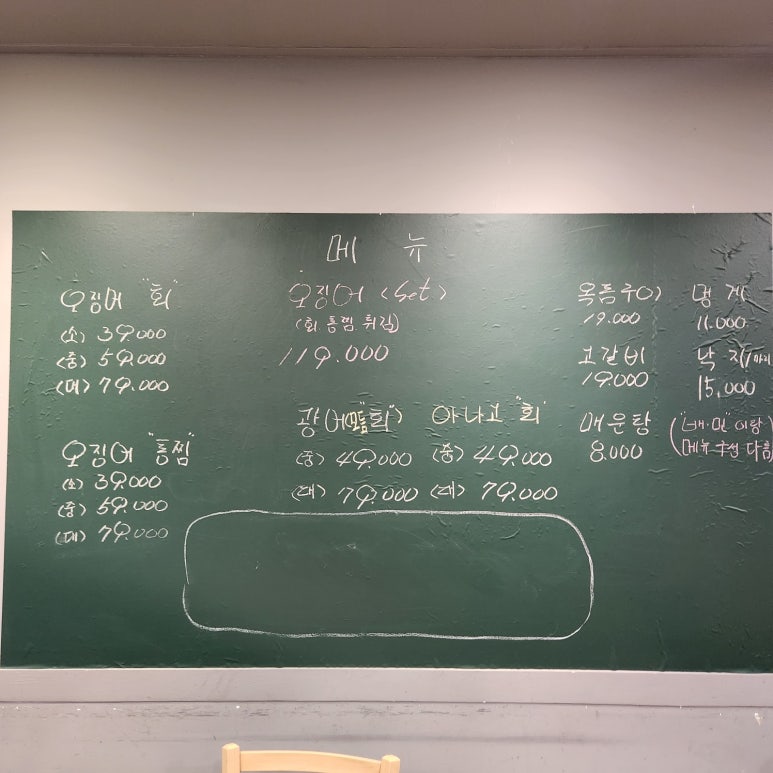 메뉴
오징어 "회"
(소) 39.000
(중) 59.000
(대) 79.000
오징어 "통찜"
(소) 39.000
(중) 59.000
(대) 79.000
오징어 <Set>
(회 통찜 튀김)
119.000
광어 회"
(중) 49.000
(대) 79.000
아나고 "회"
(중) 49.000
(대) 79.000
옥돔구이
19.000
고갈비
19.000
매운탕
8.000
멍게
11.000
낙지/마리
15,000
("배.민" 이랑
메뉴 구성 다름